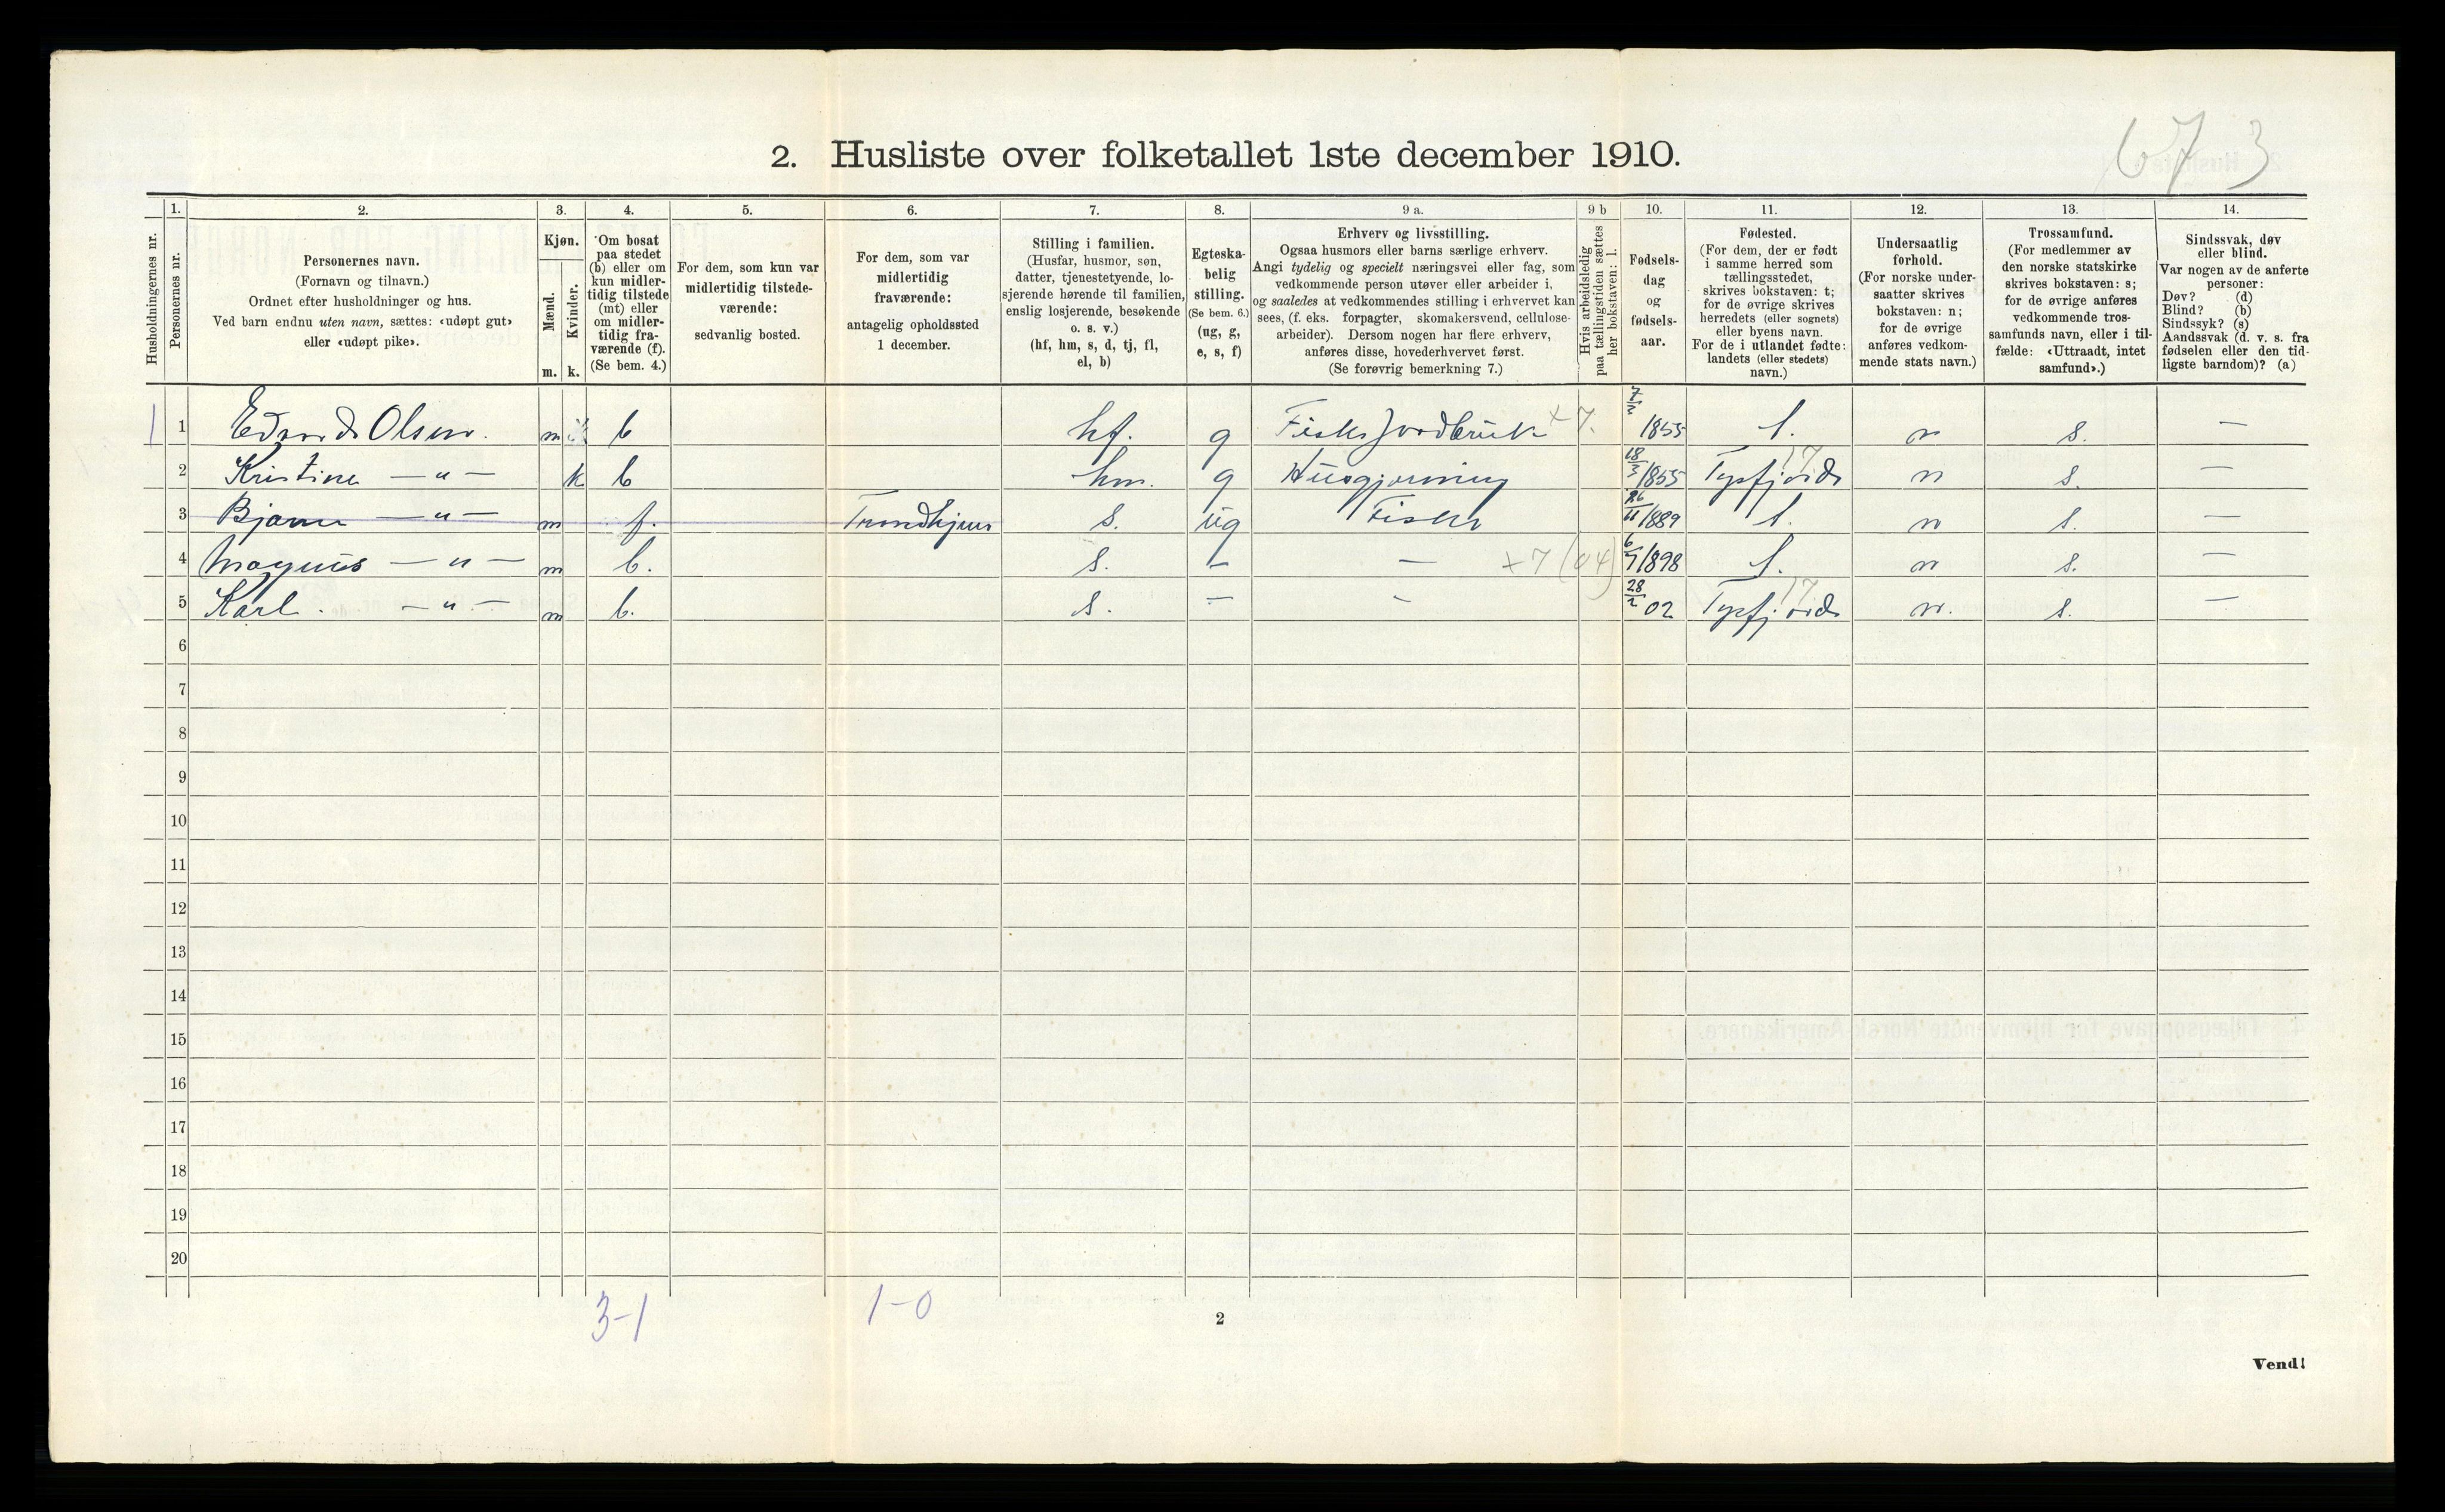 67 3
2. Husliste over folketallet 1ste december 1910.
Husholdningernes nr.
1. Personernes nr.
2. Personernes navn.
(Fornavn og tilnavn.)
Ordnet efter husholdninger og hus.
Ved barn endnu uten navn, sættes: «udøpt gut»
eller «udøpt pike».
3. Kjøn.
Mænd. m.
Kvinder. k.
4. Om bosat
paa stedet
(b) eller om
kun midler-
tidig tilstede
(mt) eller
om midler-
tidig fra-
værende (f).
(Se bem. 4.)
5. For dem, som kun var
midlertidig tilstede-
værende:
sedvanlig bosted.
6. For dem, som var
midlertidig
fraværende:
antagelig opholdssted
1 december.
7. Stilling i familien.
(Husfar, husmor, søn,
datter, tjenestetyende, lo-
sjerende hørende til familien,
enslig losjerende, besøkende
o. s. v.)
(hf, hm, s, d, tj, fl,
el, b)
8. Egteska-
belig
stilling.
(Se bem. 6.)
(ug, g,
e, s, f)
9 a. Erhverv og livsstilling.
Ogsaa husmors eller barns særlige erhverv.
Angi tydelig og specielt næringsvei eller fag, som
vedkommende person utøver eller arbeider i,
og saaledes at vedkommendes stilling i erhvervet kan
sees, (f. eks. forpagter, skomakersvend, cellulose-
arbeider). Dersom nogen har flere erhverv,
anføres disse, hovederhvervet først.
(Se forøvrig bemerkning 7.)
9 b Hvis arbeidsledig
paa tællingstiden sættes
her bokstaven: l.
10. Fødsels-
dag
og
fødsels-
aar.
11. Fødested.
(For dem, der er født
i samme herred som
tællingsstedet,
skrives bokstaven: t;
for de øvrige skrives
herredets (eller sognets)
eller byens navn.
For de i utlandet fødte:
landets (eller stedets)
navn.)
12. Undersaatlig
forhold.
(For norske under-
saatter skrives
bokstaven: n;
for de øvrige
anføres vedkom-
mende stats navn.)
13. Trossamfund.
(For medlemmer av
den norske statskirke
skrives bokstaven: s;
for de øvrige anføres
vedkommende tros-
samfunds navn, eller i til-
fælde: «Uttraadt, intet
samfund».)
14. Sindssvak, døv
eller blind.
Var nogen av de anførte
personer:
Døv? (d)
Blind? (b)
Sindssyk? (s)
Aandssvak (d. v. s. fra
fødselen eller den tid-
ligste barndom)? (a)
1 1 Edvard Olsen. m b hf. g Fisker Jordbruk +7. 1855 t. n s. —
2 Kristine — " — k b hm. g Husgjerning 18/3 1855 Tysfjord 17 n s. —
3 Bjarne — " — m f. Trondhjem s. ug Fisker 26/11 1889 t. n s. —
4 Magnus — " — m b. s. — — +7 (04) 6/7 1898 t. n s. —
5 Karl. — " — m b. s. — — 28/2 02 Tysfjord 17 n. s. —
6
7
8
9
10
11
12
13
14
15
16
17
18
19
20
3-1 1-0
2
Vend!